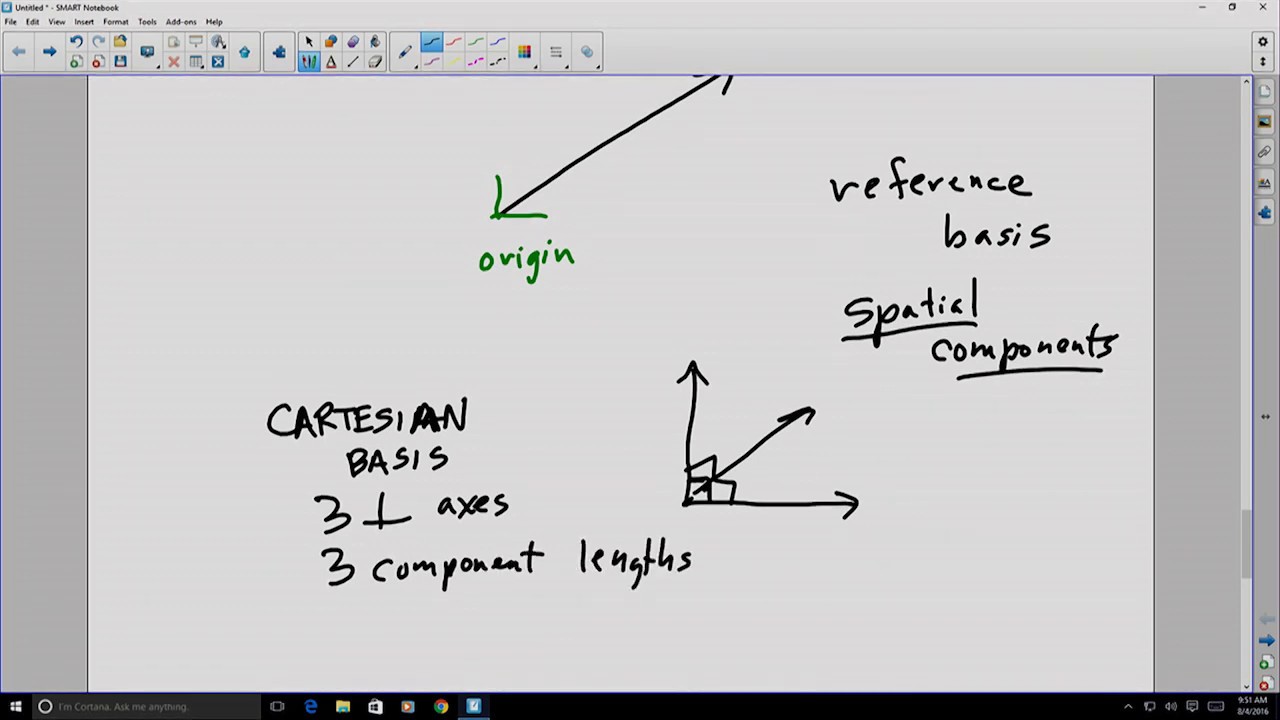 Untitled * - SMART Notebook
File Edit View Insert Format Tools Add-ons Help
reference
basis
origin
spatial
components
CARTESIAN
BASIS
3 ⊥ axes
3 component lengths
I'm Cortana. Ask me anything.
9:51 AM
8/4/2016